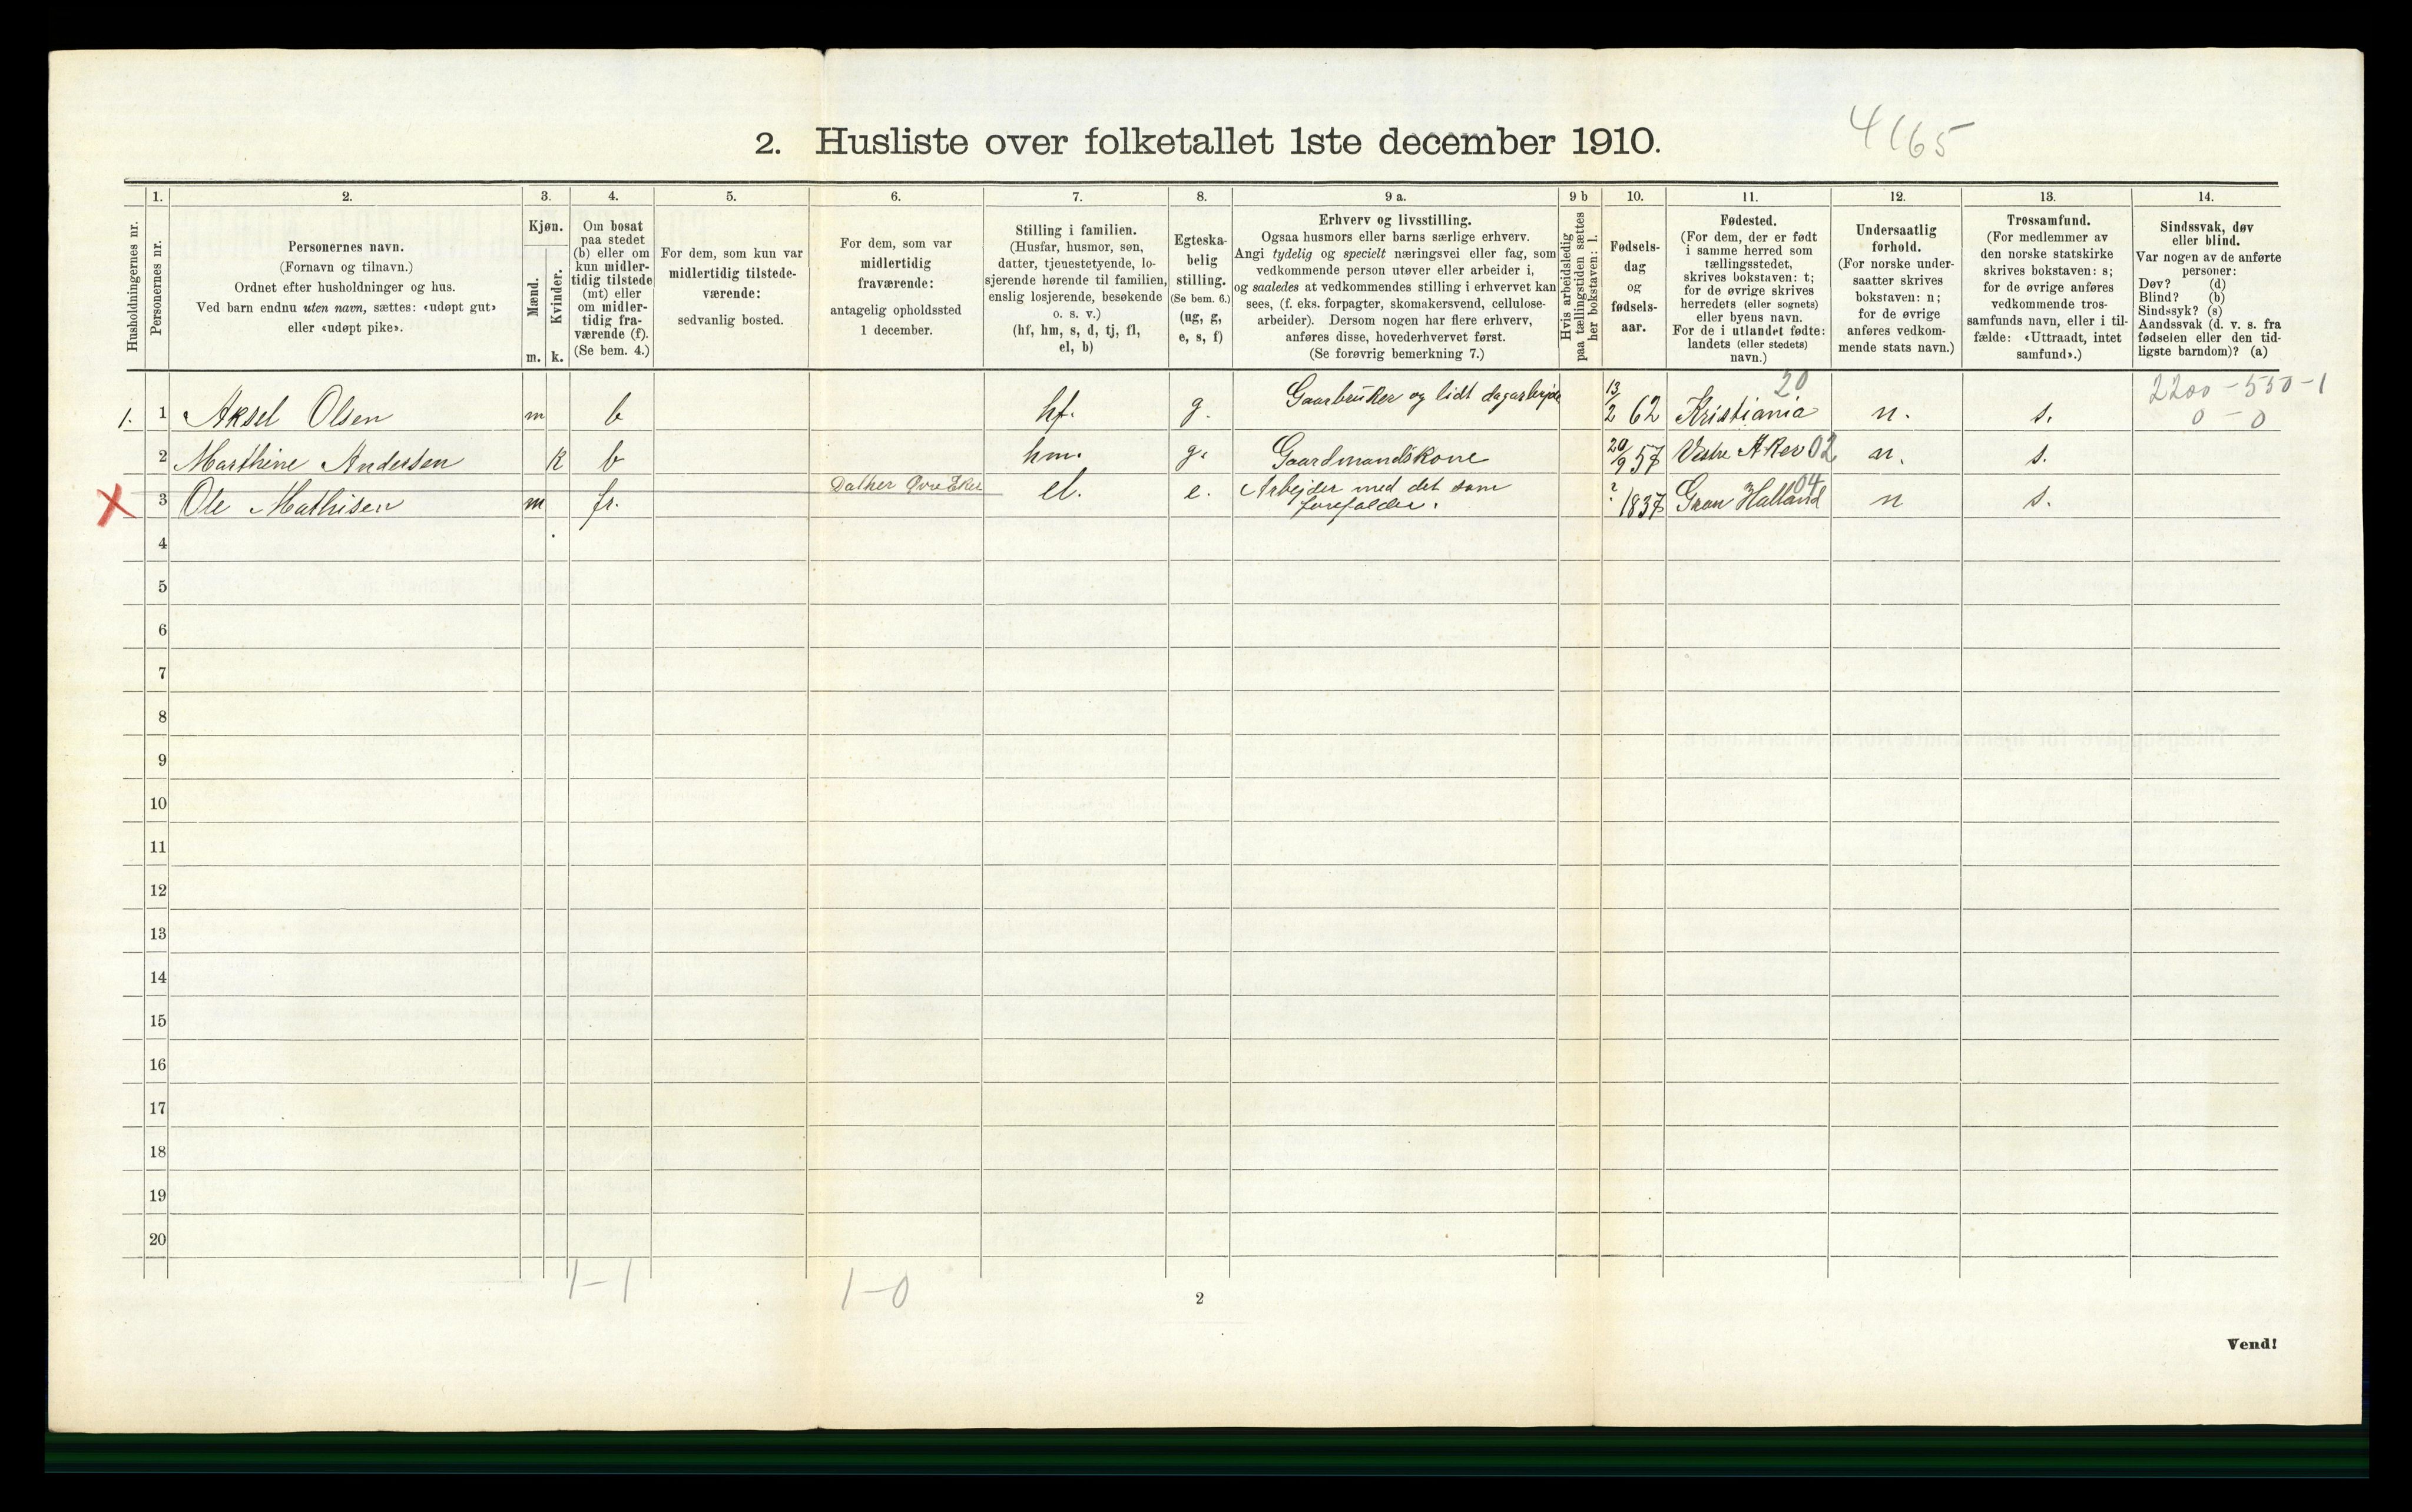 2. Husliste over folketallet 1ste december 1910.
4165
Husholdningernes nr.
1.
Personernes nr.
2.
Personernes navn.
(Fornavn og tilnavn.)
Ordnet efter husholdninger og hus.
Ved barn endnu uten navn, sættes: «udøpt gut»
eller «udøpt pike».
3.
Kjøn.
Mænd.
Kvinder.
m. k.
4.
Om bosat
paa stedet
(b) eller om
kun midler-
tidig tilstede
(mt) eller
om midler-
tidig fra-
værende (f).
(Se bem. 4.)
5.
For dem, som kun var
midlertidig tilstede-
værende:
sedvanlig bosted.
6.
For dem, som var
midlertidig
fraværende:
antagelig opholdssted
1 december.
7.
Stilling i familien.
(Husfar, husmor, søn,
datter, tjenestetyende, lo-
sjerende hørende til familien,
enslig losjerende, besøkende
o. s. v.)
(hf, hm, s, d, tj, fl,
el, b)
8.
Egteska-
belig
stilling.
(Se bem. 6.)
(ug, g,
e, s, f)
9 a.
Erhverv og livsstilling.
Ogsaa husmors eller barns særlige erhverv.
Angi tydelig og specielt næringsvei eller fag, som
vedkommende person utøver eller arbeider i,
og saaledes at vedkommendes stilling i erhvervet kan
sees, (f. eks. forpagter, skomakersvend, cellulose-
arbeider). Dersom nogen har flere erhverv,
anføres disse, hovederhvervet først.
(Se forøvrig bemerkning 7.)
9 b
Hvis arbeidsledig
paa tællingstiden sættes
her bokstaven: l.
10.
Fødsels-
dag
og
fødsels-
aar.
11.
Fødested.
(For dem, der er født
i samme herred som
tællingsstedet,
skrives bokstaven: t;
for de øvrige skrives
herredets (eller sognets)
eller byens navn.
For de i utlandet fødte:
landets (eller stedets)
navn.)
12.
Undersaatlig
forhold.
(For norske under-
saatter skrives
bokstaven: n;
for de øvrige
anføres vedkom-
mende stats navn.)
13.
Trossamfund.
(For medlemmer av
den norske statskirke
skrives bokstaven: s;
for de øvrige anføres
vedkommende tros-
samfunds navn, eller i til-
fælde: «Uttraadt, intet
samfund».)
14.
Sindssvak, døv
eller blind.
Var nogen av de anførte
personer:
Døv? (d)
Blind? (b)
Sindssyk? (s)
Aandssvak (d. v. s. fra
fødselen eller den tid-
ligste barndom)? (a)
20
2200 - 550 - 1
1. 1 Aksel Olsen m b hf. g. Gaarbruker og lidt dagarbejde 13/2 62 Kristiania n. s. 0 - 0
2 Marthine Andersen k b hm. g. Gaardmandskone 20/9 57 Vestre Aker 02 n. s.
X 3 Ole Mathisen m fr. Øvre Eker el. e. Arbejder med det som
forefalder. ? 1837 Gran Halland 04 n s.
4
5
6
7
8
9
10
11
12
13
14
15
16
17
18
19
20
1-1 1-0
2
Vend!